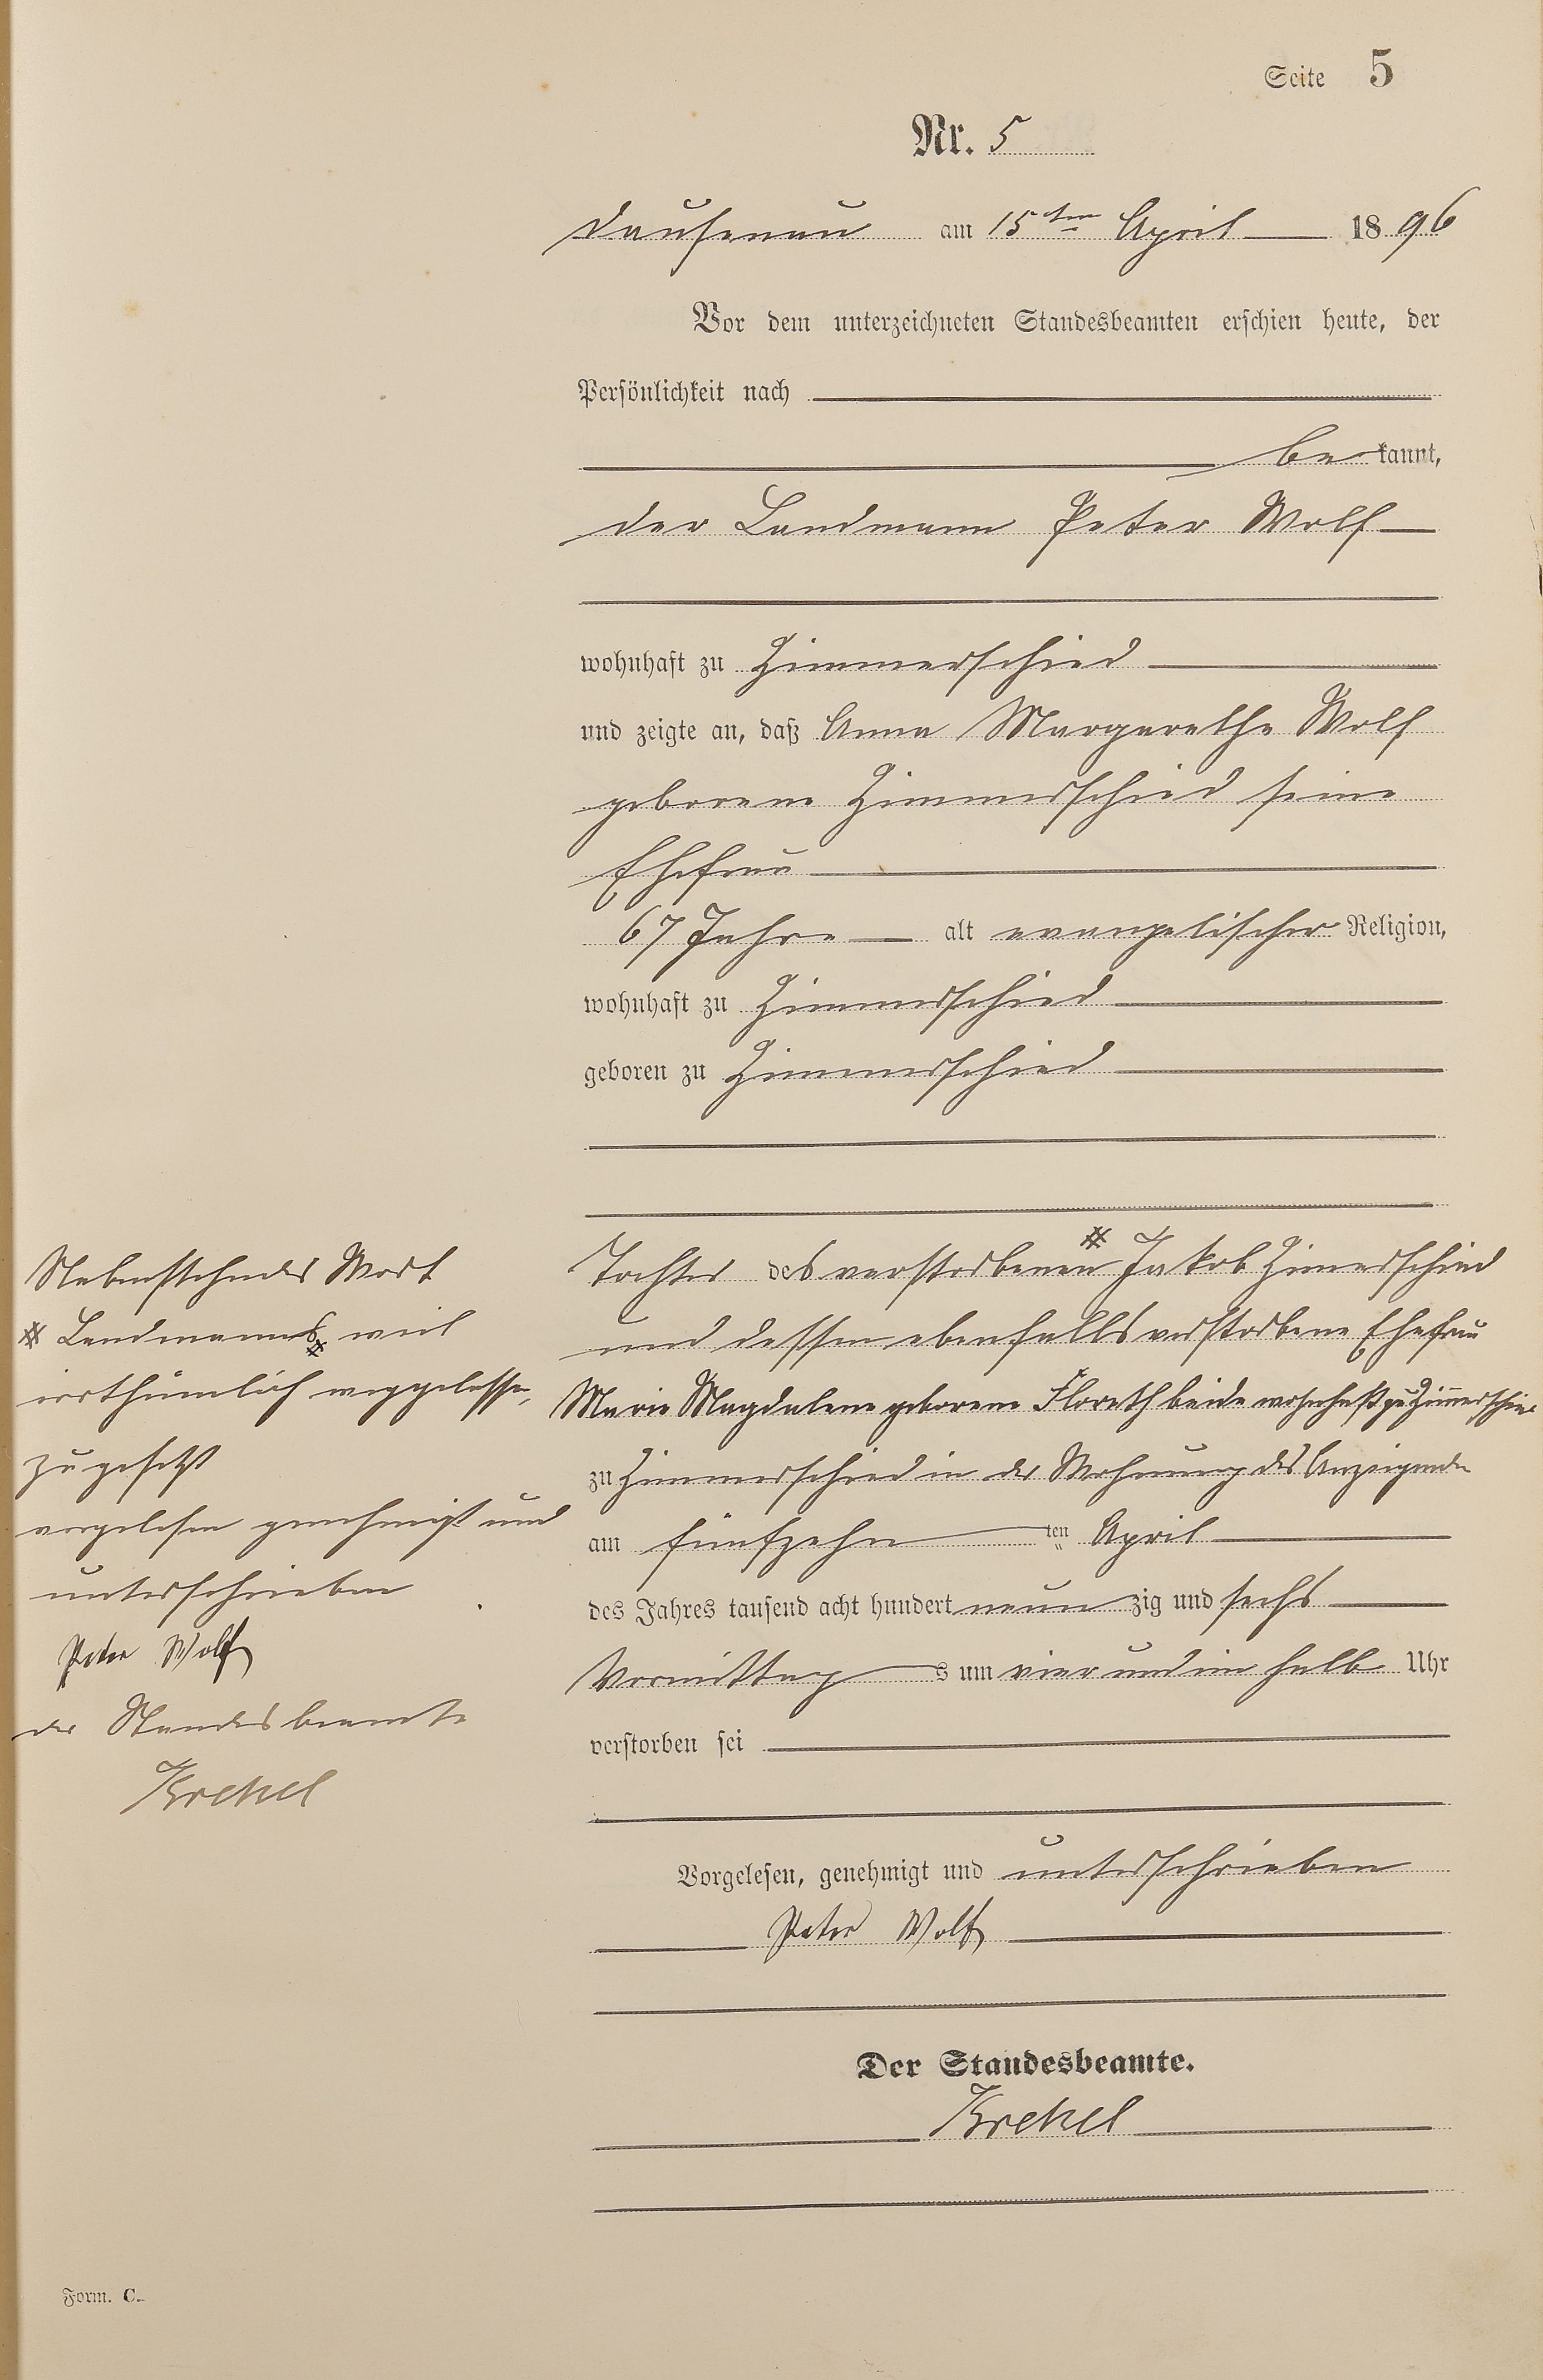 Seite 5
Nr. 5
Dausenau am 15ten April 1896
Vor dem unterzeichneten Standesbeamten erschien heute, der
Persönlichkeit nach
be kannt,
der Landmann Peter Wolf
wohnhaft zu Zimmerschied
und zeigte an, daß Anna Margarethe Wolf
geborene Zimmerschied seine
Ehefrau
67 Jahre alt evangelischer Religion,
wohnhaft zu Zimmerschied
geboren zu Zimmerschied
Tochter des verstorbenen # Jakob Zimerschied
und dessen ebenfalls verstorbene Ehefrau
Marie Magdalene geborene Florath beide wohnhaft zu Zimerschied
zu Zimmerschied in der Wohnung des Anzeigenden
am fünfzehn ten April
des Jahres tausend acht hundert neun zig und sechs
Vormittag s um vier und ein halb Uhr
verstorben sei
Vorgelesen, genehmigt und unterschrieben
Peter Wolf
Der Standesbeamte.
Krekel
Nebenstehendes Wort
# Landmanns # weil
irrthümlich weggelassen,
zugesetzt
vorgelesen genehmigt und
unterschrieben
Peter Wolf
der Standesbeamte
Krekel
Form. C.